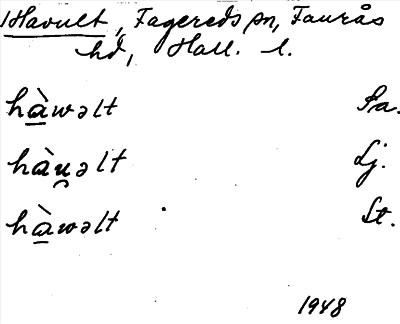 Havult, Fagereds sn, Faurås
hd, Hall. l.
hà̲wəlt Sa.
hàu̯əlt Lj.
hà̲wəlt St.
1948